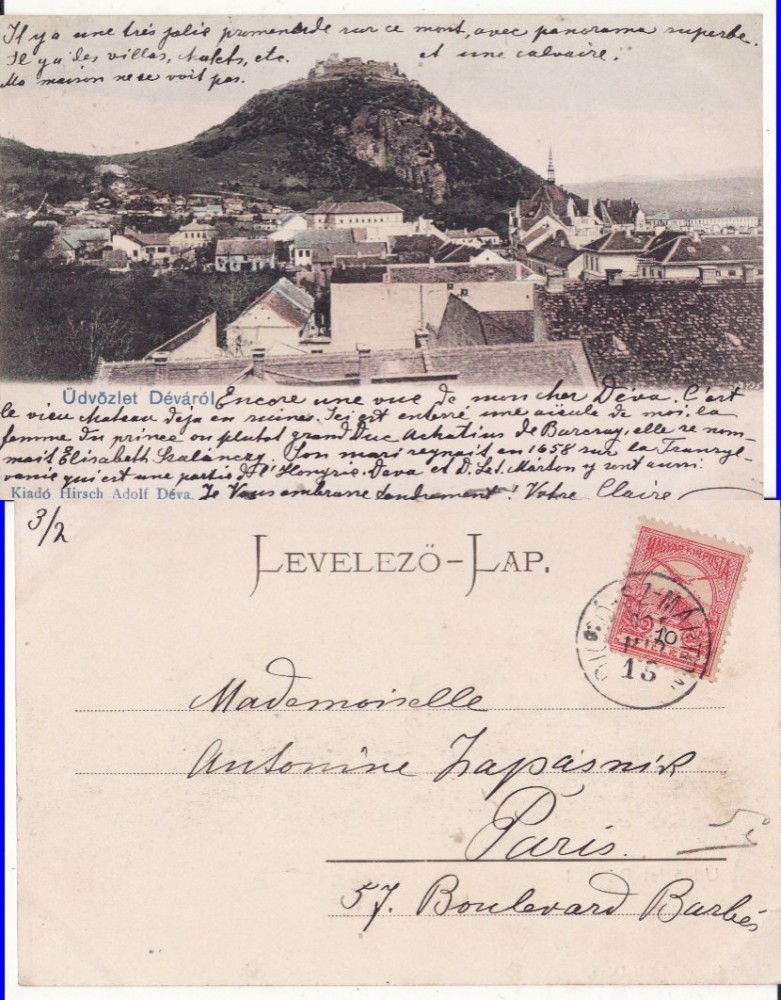 Il y a une très jolie promenade sur ce mont, avec panorama superbe.
Il y a des villas, chalets, etc. et une calvaire.
Ma maison ne se voit pas.
Üdvözlet Déváról Encore une vue de mon cher Déva. C'est
le vieu chateau deja en ruines. Ici est enterré une aieule de moi, la
femme du prince ou plutot grand Duc Achatius de Barcsay, elle se nom-
mait Elisabeth Szalánczy. Son mari regnait en 1658 sur la Transyl-
vanie qui est une partie de l'Hongrie. Deva et D. Szt. Márton y sont aussi.
Kiadó Hirsch Adolf Déva. Je Vous embrasse tendrement! Votre Claire
3/2
LEVELEZŐ-LAP.
MAGYAR KIR. POSTA
10
15
Mademoiselle
Antonine Zapásnik
Paris.
57. Boulevard Barbés